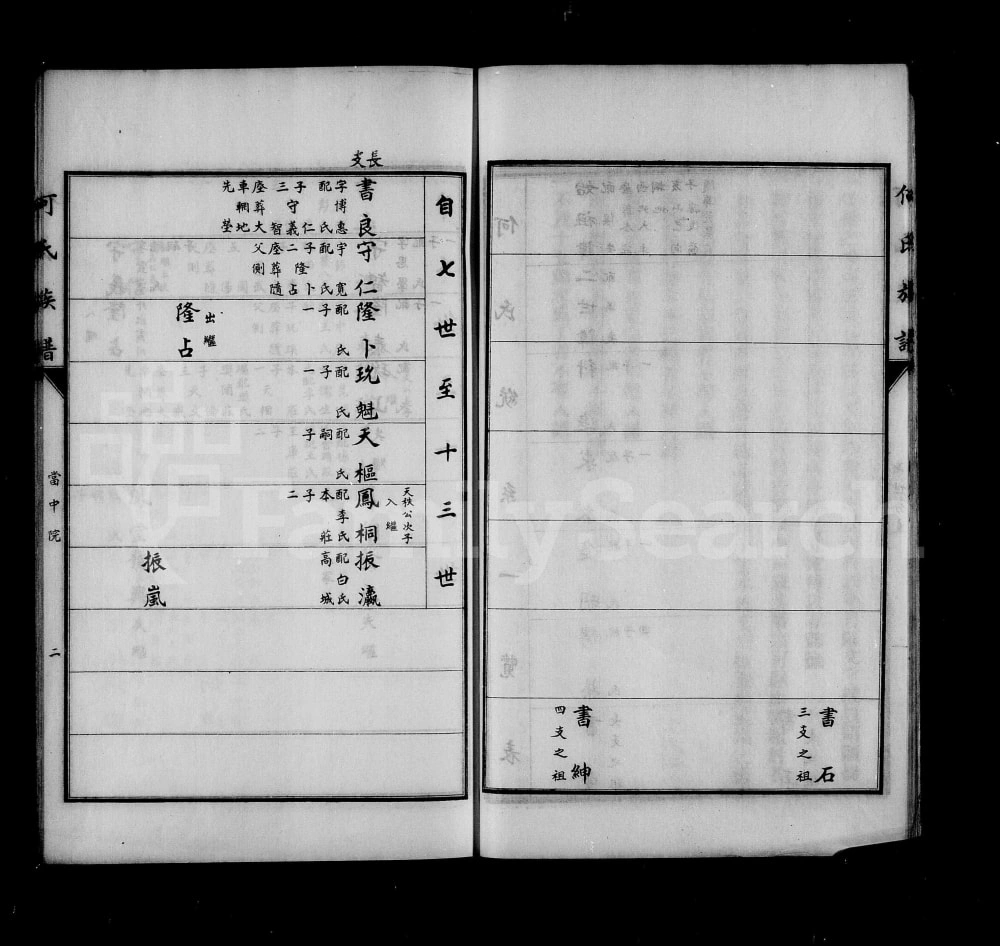 何氏族譜
書石
三支之祖
書紳
四支之祖
長支
自七世至十三世
書良
字博惠
配氏
子三
守仁義智
座葬大
車輞地
先塋
守仁
字寬
配氏
子二
隆卜占
座葬隨
父側
隆卜
配氏
子一
出繼
隆占
玧魁
配氏
子一
天樞
配氏
嗣子
天秩公次子
入繼
鳳桐
配李氏
本莊
子二
振瀛
配白氏
高城
振嵐
何氏族譜
當中院
二
FamilySearch